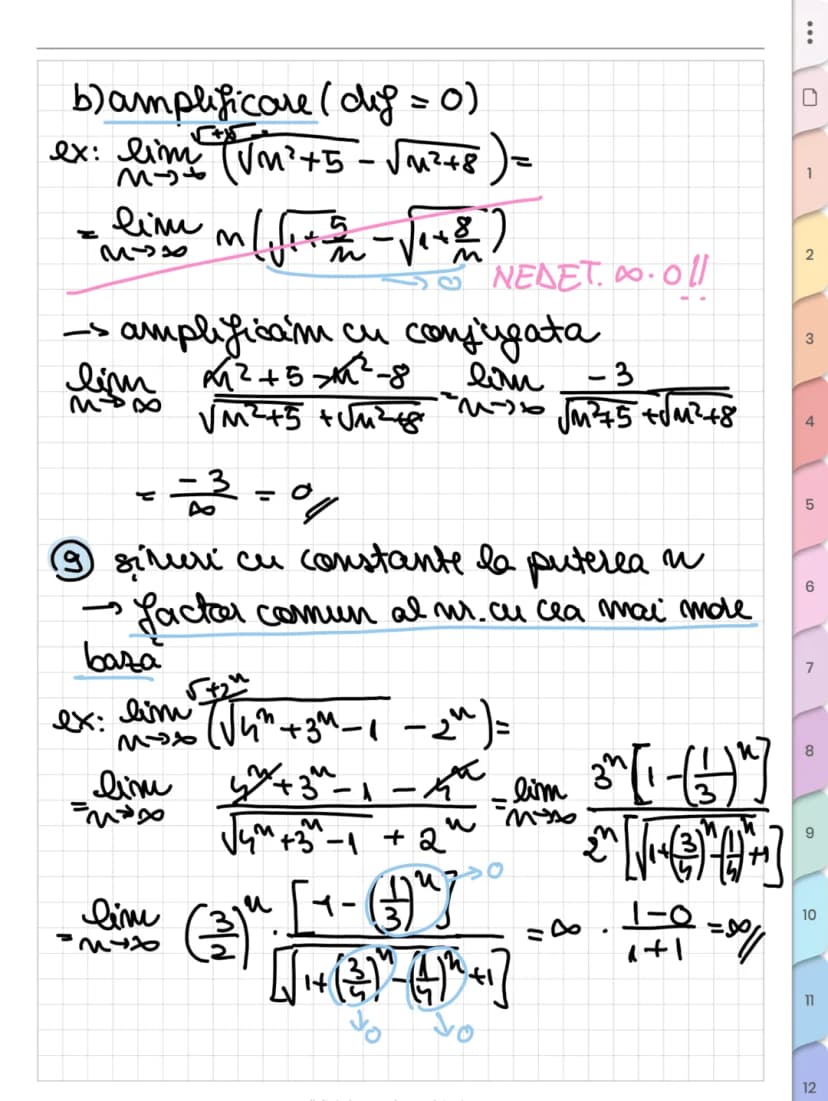 b) amplificare (dif = 0)
√+√
ex: lim n→∞ (√n²+5 - √n²+8) =
= lim n→∞ n(√1+5/n - √1+8/n)
→ 0 NEDET. ∞·0!!
→ amplificăm cu conjugata
lim n→∞ n²+5-n²-8 / √n²+5 + √n²+8 = lim n→∞ -3 / √n²+5 + √n²+8
= -3/∞ = 0
9 șiruri cu constante la puterea n
→ factor comun al nr. cu cea mai mare
bază
√+2ⁿ
ex: lim n→∞ (√4ⁿ+3ⁿ-1 - 2ⁿ) =
= lim n→∞ 4ⁿ+3ⁿ-1-4ⁿ / √4ⁿ+3ⁿ-1 + 2ⁿ = lim n→∞ 3ⁿ[1-(1/3)ⁿ] / 2ⁿ[√1+(3/4)ⁿ-(1/4)ⁿ+1]
= lim n→∞ (3/2)ⁿ · [1-(1/3)ⁿ]→0 / [√1+(3/4)ⁿ-(1/4)ⁿ+1] = ∞ · 1-0/1+1 = ∞
↓0 ↓0
1
2
3
4
5
6
7
8
9
10
11
12